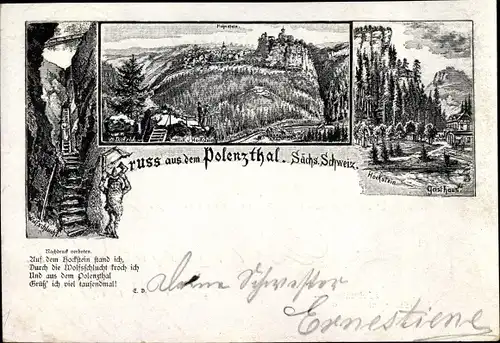 Gruss aus dem Polenzthal. Sächs. Schweiz.
Hockstein
Gasthaus.
Nachdruck verboten.
Auf dem Hockstein stand ich,
Durch die Wolfsschlucht kroch ich
Und aus dem Polenzthal
Grüß' ich viel tausendmal!
Deine Schwester
Ernestiene